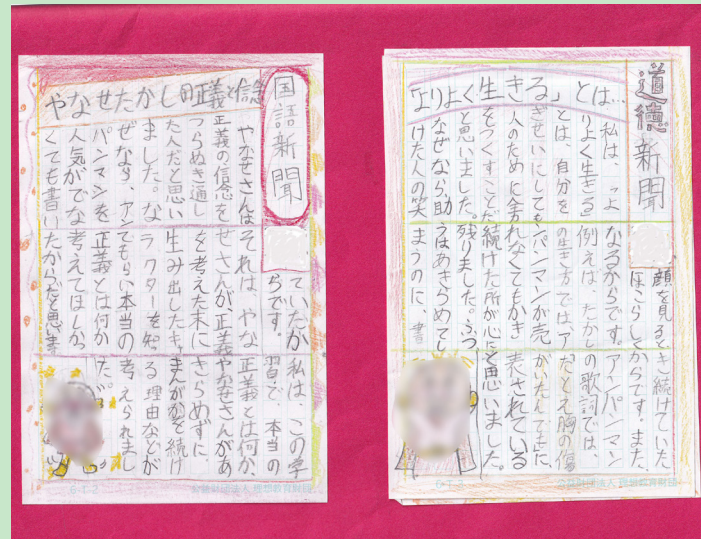 道徳新聞
「よりよく生きる」とは…
私は、「よ
りよく生きる」
とは、自分を
ぎせいにしても
人のために全力
をつくすことだ
と思いました。
なぜなら、助
けた人の笑
顔を見るとき
ほこらしく
なるからです。
例えば、たかし
の生き方では、ア
ンパンマンが売
れなくてもかき
続けた所が心に
残りました。ふつ
うはあきらめてし
まうのに、書
き続けていた
からです。また、
アンパンマン
の歌詞では、
「たとえ胸の傷
がいたんでも」に
表されている
と思いました。
公益財団法人 理想教育財団
国語新聞
やなせたかしの正義と信念
やなせさんは
正義の信念を
つらぬき通し
た人だと思い
ました。な
ぜなら、アン
パンマンを
人気がでな
くても書い
ていたか
らです。
それは、やな
せさんが、正義
を考えた末に
生み出したキャ
ラクターを知っ
てもらい本当の
正義とは何か
考えてほしか
ったからだと思
私は、この学
習で、本当の
正義とは何か、
やなせさんがあ
きらめずに、
まんがかを続け
る理由などが
考えられまし
た。
公益財団法人 理想教育財団